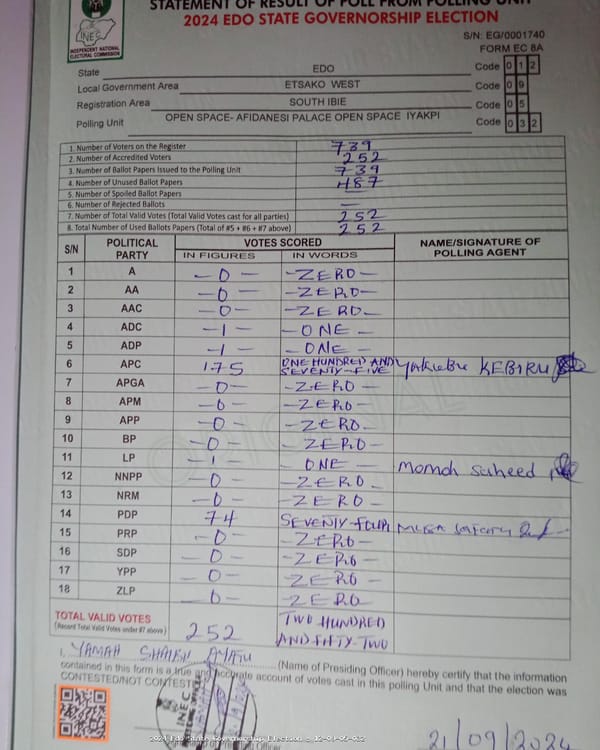 STATEMENT OF RESULT OF POLL FROM POLLING UNIT
2024 EDO STATE GOVERNORSHIP ELECTION
INEC
INDEPENDENT NATIONAL ELECTORAL COMMISSION
S/N: EG/0001740
FORM EC 8A
State EDO Code 0 1 2
Local Government Area ETSAKO WEST Code 0 9
Registration Area SOUTH IBIE Code 0 5
Polling Unit OPEN SPACE- AFIDANESI PALACE OPEN SPACE IYAKPI Code 0 3 2
1. Number of Voters on the Register 739
2. Number of Accredited Voters 252
3. Number of Ballot Papers Issued to the Polling Unit 739
4. Number of Unused Ballot Papers 487
5. Number of Spoiled Ballot Papers —
6. Number of Rejected Ballots —
7. Number of Total Valid Votes (Total Valid Votes cast for all parties) 252
8. Total Number of Used Ballots Papers (Total of #5 + #6 + #7 above) 252
S/N POLITICAL PARTY VOTES SCORED NAME/SIGNATURE OF POLLING AGENT
IN FIGURES IN WORDS
1 A -0- -ZERO-
2 AA -0- -ZERO-
3 AAC -0- -ZERO-
4 ADC -1- -ONE-
5 ADP -1- -ONE-
6 APC 175 ONE HUNDRED AND SEVENTY-FIVE KEBIRU
7 APGA -0- -ZERO-
8 APM -0- -ZERO-
9 APP -0- -ZERO-
10 BP -0- -ZERO-
11 LP -1- -ONE- Momoh Saheed
12 NNPP -0- -ZERO-
13 NRM -0- -ZERO-
14 PDP 74 SEVENTY-FOUR
15 PRP -0- -ZERO-
16 SDP -0- -ZERO-
17 YPP -0- -ZERO-
18 ZLP -0- -ZERO-
TOTAL VALID VOTES
(Record Total Valid Votes under #7 above) 252 TWO HUNDRED AND FIFTY-TWO
I, YAMAH (Name of Presiding Officer) hereby certify that the information
contained in this form is a true and accurate account of votes cast in this polling Unit and that the election was
CONTESTED/NOT CONTESTED
INEC
21/09/2024
2024 Edo State Governorship Election - 12-09-05-032